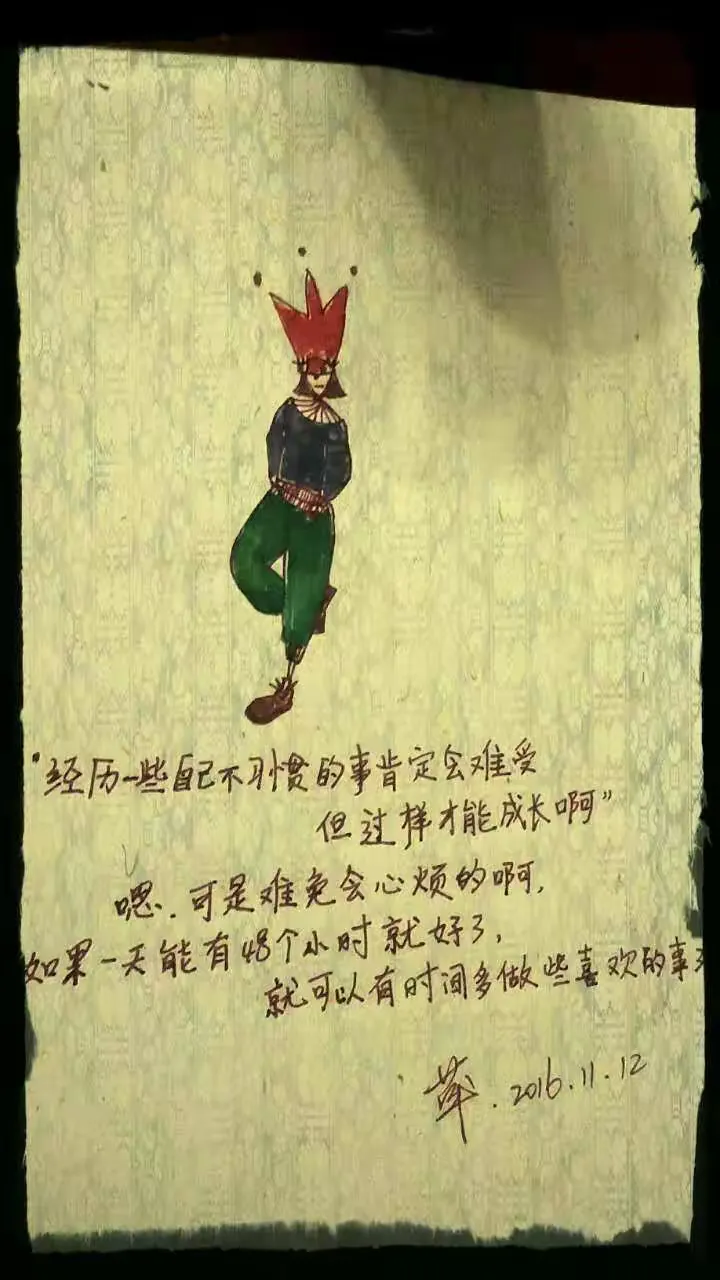 “经历一些自己不习惯的事肯定会难受
但过样才能成长啊”
嗯.可是难免会心烦的啊,
如果一天能有48个小时就好了,
就可以有时间多做些喜欢的事
.2016.11.12